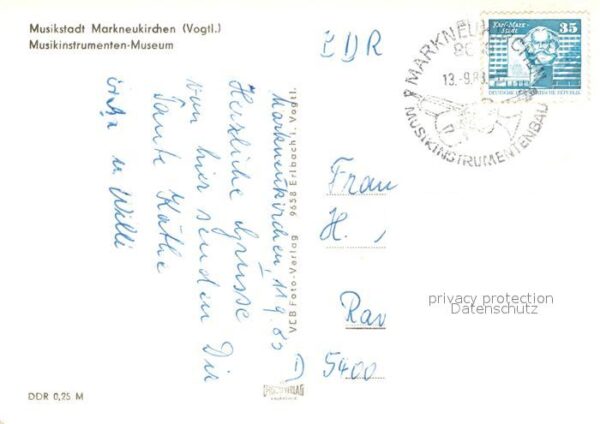 Musikstadt Markneukirchen (Vogtl.)
Musikinstrumenten-Museum
Markneukirchen, 11.9.83
Herzliche Grüsse
von hier senden Dir
Tante Käthe
u. Willi
VEB Foto-Verlag 9658 Erlbach i. Vogtl.
DDR 0,25 M
DDR
MARKNEUKIRCHEN
13.-9.83
MUSIKINSTRUMENTENBAU
Karl-Marx-
Stadt
35
DEUTSCHE DEMOKRATISCHE REPUBLIK
Frau
H. ,
Rav
5400
privacy protection
Datenschutz